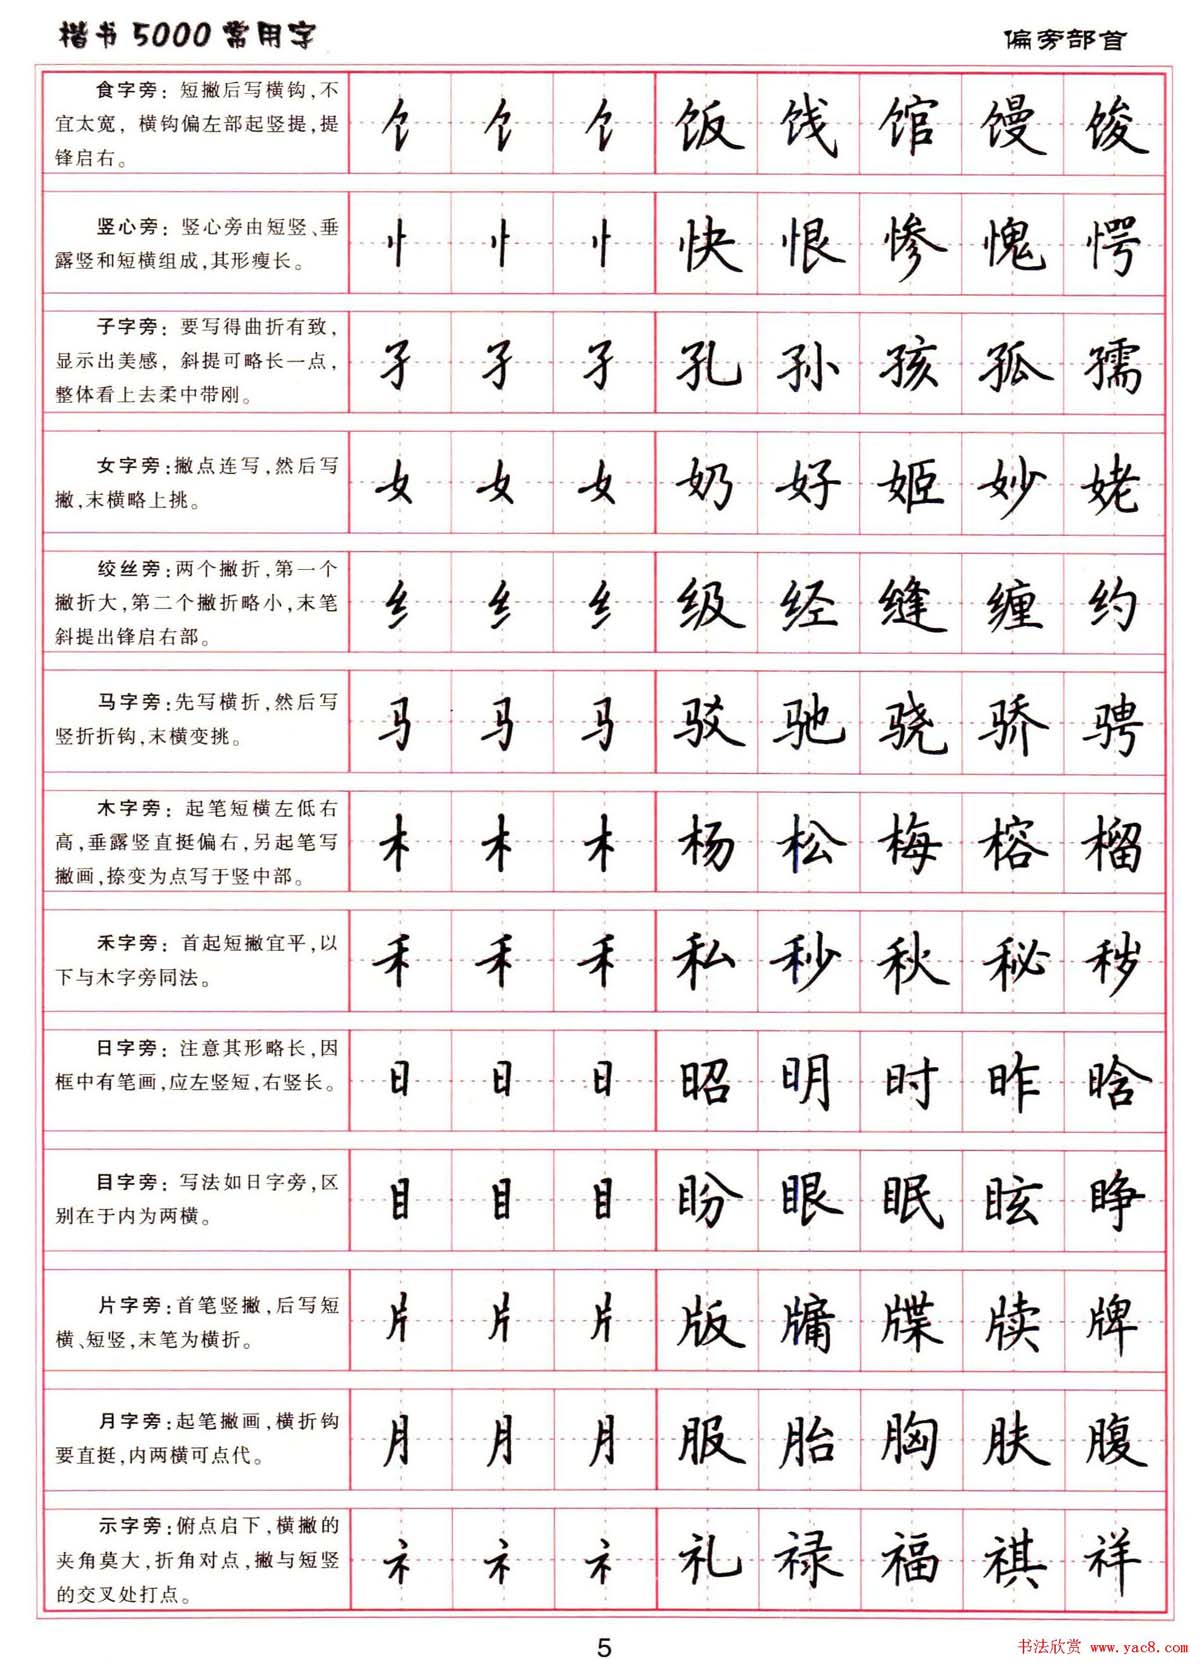 楷书5000常用字
偏旁部首
食字旁：短撇后写横钩，不
宜太宽，横钩偏左部起竖提，提
锋启右。
饣 饣 饣 饭 饯 馆 馒 馂
竖心旁：竖心旁由短竖、垂
露竖和短横组成，其形瘦长。
忄 忄 忄 快 恨 惨 愧 愕
子字旁：要写得曲折有致，
显示出美感，斜提可略长一点，
整体看上去柔中带刚。
孑 孑 孑 孔 孙 孩 孤 孺
女字旁：撇点连写，然后写
撇，末横略上挑。
女 女 女 奶 好 姬 妙 姥
绞丝旁：两个撇折，第一个
撇折大，第二个撇折略小，末笔
斜提出锋启右部。
纟 纟 纟 级 经 缝 缠 约
马字旁：先写横折，然后写
竖折折钩，末横变挑。
马 马 马 驳 驰 骁 骄 骋
木字旁：起笔短横左低右
高，垂露竖直挺偏右，另起笔写
撇画，捺变为点写于竖中部。
木 木 木 杨 松 梅 榕 榴
禾字旁：首起短撇宜平，以
下与木字旁同法。
禾 禾 禾 私 秒 秋 秘 秽
日字旁：注意其形略长，因
框中有笔画，应左竖短，右竖长。
日 日 日 昭 明 时 昨 晗
目字旁：写法如日字旁，区
别在于内为两横。
目 目 目 盼 眼 眠 眩 睁
片字旁：首笔竖撇，后写短
横、短竖，末笔为横折。
片 片 片 版 牗 牒 牍 牌
月字旁：起笔撇画，横折钩
要直挺，内两横可点代。
月 月 月 服 胎 胸 肤 腹
示字旁：俯点启下，横撇的
夹角莫大，折角对点，撇与短竖
的交叉处打点。
礻 礻 礻 礼 禄 福 祺 祥
5
书法欣赏 www.yac8.com